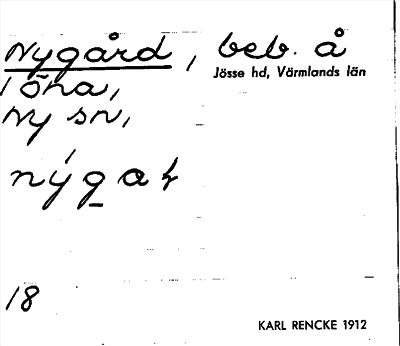 Nygård, beb. å
Jösse hd, Värmlands län
Töna,
Ny sn,
18
KARL RENCKE 1912